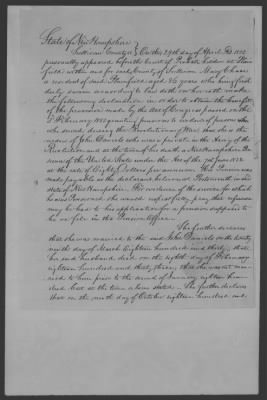 State of New Hampshire
Sullivan County } On this 29th day of April A.D. 1853
personally appeared before the Court of Probate holden at
within and for said County of Sullivan Mary Chase
a resident of said aged 76 years who being first
duly sworn according to law doth on her oath make
the following declaration in order to obtain the benefit
of the provision made by the Act of Congress passed on the
3 February 1853 granting pensions to widows of persons who
who served during the Revolutionary War that she is the
widow of John Daniels who was a private in the Army of the
Revolution and at the time of his death a
of the United States under the Act of the 7th June 1832
at the rate of Eighty Dollars per annum. His Pension was
made payable as the declarant believes at Portsmouth in the
State of New Hampshire. For evidence of the services for which
he was Pensioned she would respectfully pray that reference
may be had to his application for a pension supposed to
be on file in the Pension Office.
She further declares
that she was married to the said John Daniels on the twenty
ninth day of March Eighteen hundred and thirty that
her said husband died on the eighth day of February
eighteen hundred and thirty three; that she was not mar-
ried to him prior to the second of January eighteen hun-
dred but at the time above stated. She further declares
that on the ninth day of October eighteen hundred and